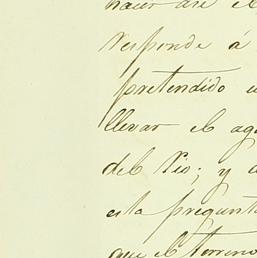 hacer así el
responde á
pretendido
llevar el ag
del Rio; y
esta pregunt
que el terreno